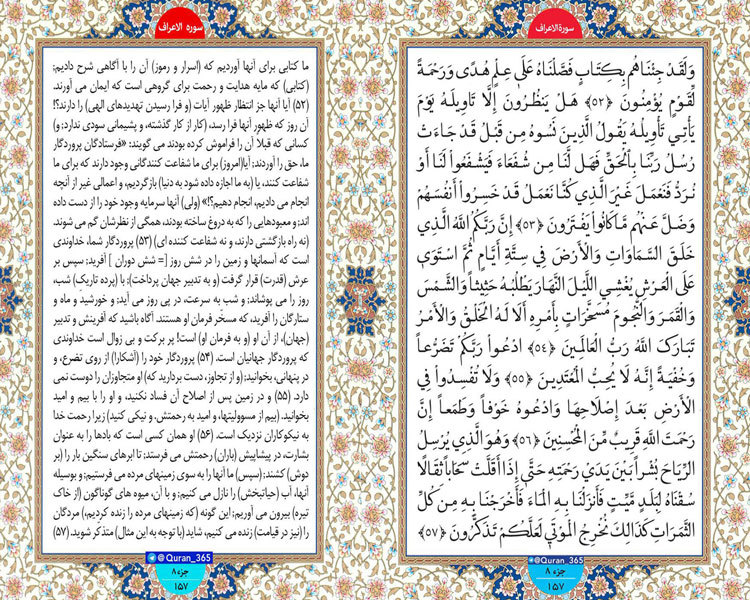 سورةالأعراف
وَلَقَدْ جِئْنَاهُم بِكِتَابٍ فَصَّلْنَاهُ عَلَىٰ عِلْمٍ هُدًى وَرَحْمَةً
لِّقَوْمٍ يُؤْمِنُونَ ﴿٥٢﴾ هَلْ يَنظُرُونَ إِلَّا تَأْوِيلَهُ يَوْمَ
يَأْتِي تَأْوِيلُهُ يَقُولُ الَّذِينَ نَسُوهُ مِن قَبْلُ قَدْ جَاءَتْ
رُسُلُ رَبِّنَا بِالْحَقِّ فَهَل لَّنَا مِن شُفَعَاءَ فَيَشْفَعُوا لَنَا أَوْ
نُرَدُّ فَنَعْمَلَ غَيْرَ الَّذِي كُنَّا نَعْمَلُ قَدْ خَسِرُوا أَنفُسَهُمْ
وَضَلَّ عَنْهُم مَّا كَانُوا يَفْتَرُونَ ﴿٥٣﴾ إِنَّ رَبَّكُمُ اللَّهُ الَّذِي
خَلَقَ السَّمَاوَاتِ وَالْأَرْضَ فِي سِتَّةِ أَيَّامٍ ثُمَّ اسْتَوَىٰ
عَلَى الْعَرْشِ يُغْشِي اللَّيْلَ النَّهَارَ يَطْلُبُهُ حَثِيثًا وَالشَّمْسَ
وَالْقَمَرَ وَالنُّجُومَ مُسَخَّرَاتٍ بِأَمْرِهِ أَلَا لَهُ الْخَلْقُ وَالْأَمْرُ
تَبَارَكَ اللَّهُ رَبُّ الْعَالَمِينَ ﴿٥٤﴾ ادْعُوا رَبَّكُمْ تَضَرُّعًا
وَخُفْيَةً إِنَّهُ لَا يُحِبُّ الْمُعْتَدِينَ ﴿٥٥﴾ وَلَا تُفْسِدُوا فِي
الْأَرْضِ بَعْدَ إِصْلَاحِهَا وَادْعُوهُ خَوْفًا وَطَمَعًا إِنَّ
رَحْمَتَ اللَّهِ قَرِيبٌ مِّنَ الْمُحْسِنِينَ ﴿٥٦﴾ وَهُوَ الَّذِي يُرْسِلُ
الرِّيَاحَ بُشْرًا بَيْنَ يَدَيْ رَحْمَتِهِ حَتَّىٰ إِذَا أَقَلَّتْ سَحَابًا ثِقَالًا
سُقْنَاهُ لِبَلَدٍ مَّيِّتٍ فَأَنزَلْنَا بِهِ الْمَاءَ فَأَخْرَجْنَا بِهِ مِن كُلِّ
الثَّمَرَاتِ كَذَٰلِكَ نُخْرِجُ الْمَوْتَىٰ لَعَلَّكُمْ تَذَكَّرُونَ ﴿٥٧﴾
@Quran_365
جزء ۸
۱۵۷
سوره الاعراف
ما کتابی برای آنها آوردیم که (اسرار و رموز) آن را با آگاهی شرح دادیم;
(کتابی) که مایه هدایت و رحمت برای گروهی است که ایمان می آورند.
(۵۲) آیا آنها جز انتظار ظهور آیات (و فرا رسیدن تهدیدهای الهی) را دارند؟!
آن روز که ظهور آنها فرا رسد، (کار از کار گذشته، و پشیمانی سودی ندارد; و)
کسانی که قبلاً آن را فراموش کرده بودند می گویند: «فرستادگان پروردگار
ما، حق را آوردند; آیا(امروز) برای ما شفاعت کنندگانی وجود دارند که برای ما
شفاعت کنند، یا (به ما اجازه داده شود به دنیا) بازگردیم، و اعمالی غیر از آنچه
انجام می دادیم، انجام دهیم؟!» (ولی) آنها سرمایه وجود خود را از دست داده
اند; و معبودهایی را که به دروغ ساخته بودند، همگی از نظرشان گم می شوند.
(نه راه بازگشتی دارند، و نه شفاعت کننده ای) (۵۳) پروردگار شما، خداوندی
است که آسمانها و زمین را در شش روز [= شش دوران ] آفرید; سپس بر
عرش (قدرت) قرار گرفت (و به تدبیر جهان پرداخت); با (پرده تاریک) شب،
روز را می پوشاند; و شب به سرعت، در پی روز می آید; و خورشید و ماه و
ستارگان را آفرید، که مسخّر فرمان او هستند. آگاه باشید که آفرینش و تدبیر
(جهان)، از آن او (و به فرمان او) است! پر برکت و بی زوال است خداوندی
که پروردگار جهانیان است. (۵۴) پروردگار خود را (آشکارا) از روی تضرع، و
در پنهانی، بخوانید; (و از تجاوز، دست بردارید که) او متجاوزان را دوست نمی
دارد. (۵۵) و در زمین پس از اصلاح آن فساد نکنید، و او را با بیم و امید
بخوانید. (بیم از مسوولیتها، و امید به رحمتش، و نیکی کنید) زیرا رحمت خدا
به نیکوکاران نزدیک است. (۵۶) او همان کسی است که بادها را به عنوان
بشارت، در پیشاپیش (باران) رحمتش می فرستد; تا ابرهای سنگین بار را (بر
دوش) کشند; (سپس) ما آنها را به سوی زمینهای مرده می فرستیم; و بوسیله
آنها، آب (حیاتبخش) را نازل می کنیم; و با آن، میوه های گوناگون (از خاک
تیره) بیرون می آوریم; این گونه (که زمینهای مرده را زنده کردیم،) مردگان
را (نیز در قیامت) زنده می کنیم، شاید (با توجه به این مثال) متذکر شوید. (۵۷)
@Quran_365
جزء ۸
۱۵۷